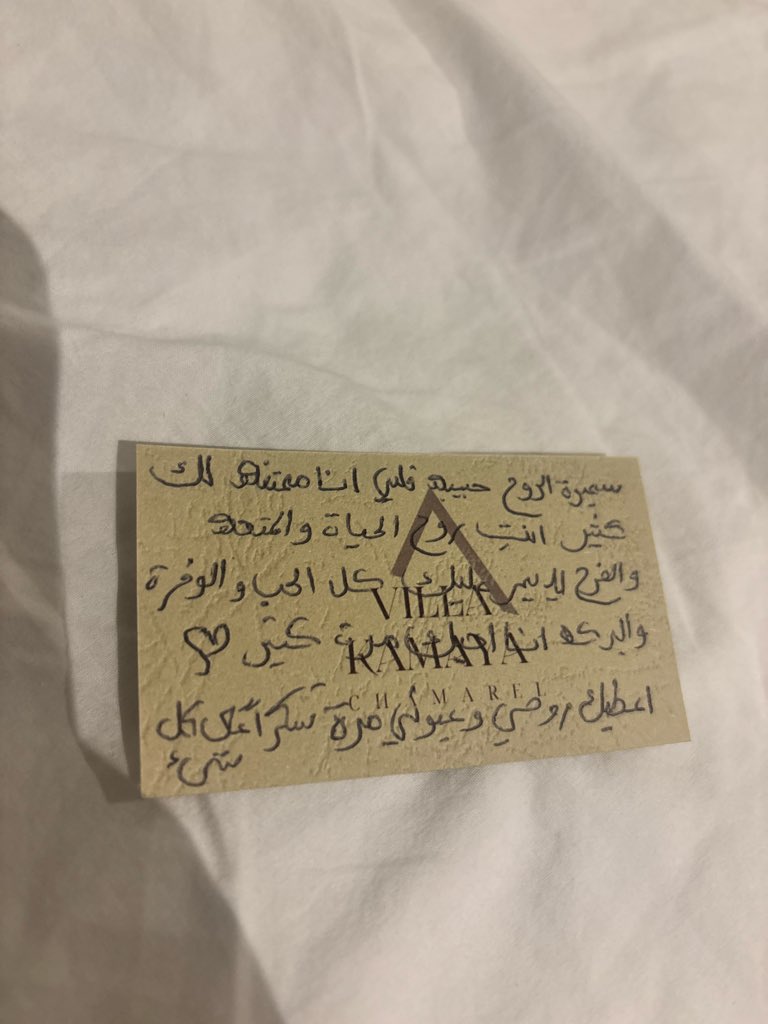 سميرة الروح حبيبه قلبي انا ممتنه لك
كثير انتِ روح الحياة والمتعه
والفرح الله يديم عليك كل الحب والوفرة
والبركه انا احبك مرة كثير
اعطيك روحي وعيوني مرة شكراً على كل
شيء
VILLA
RAMAYA
CHAMAREL